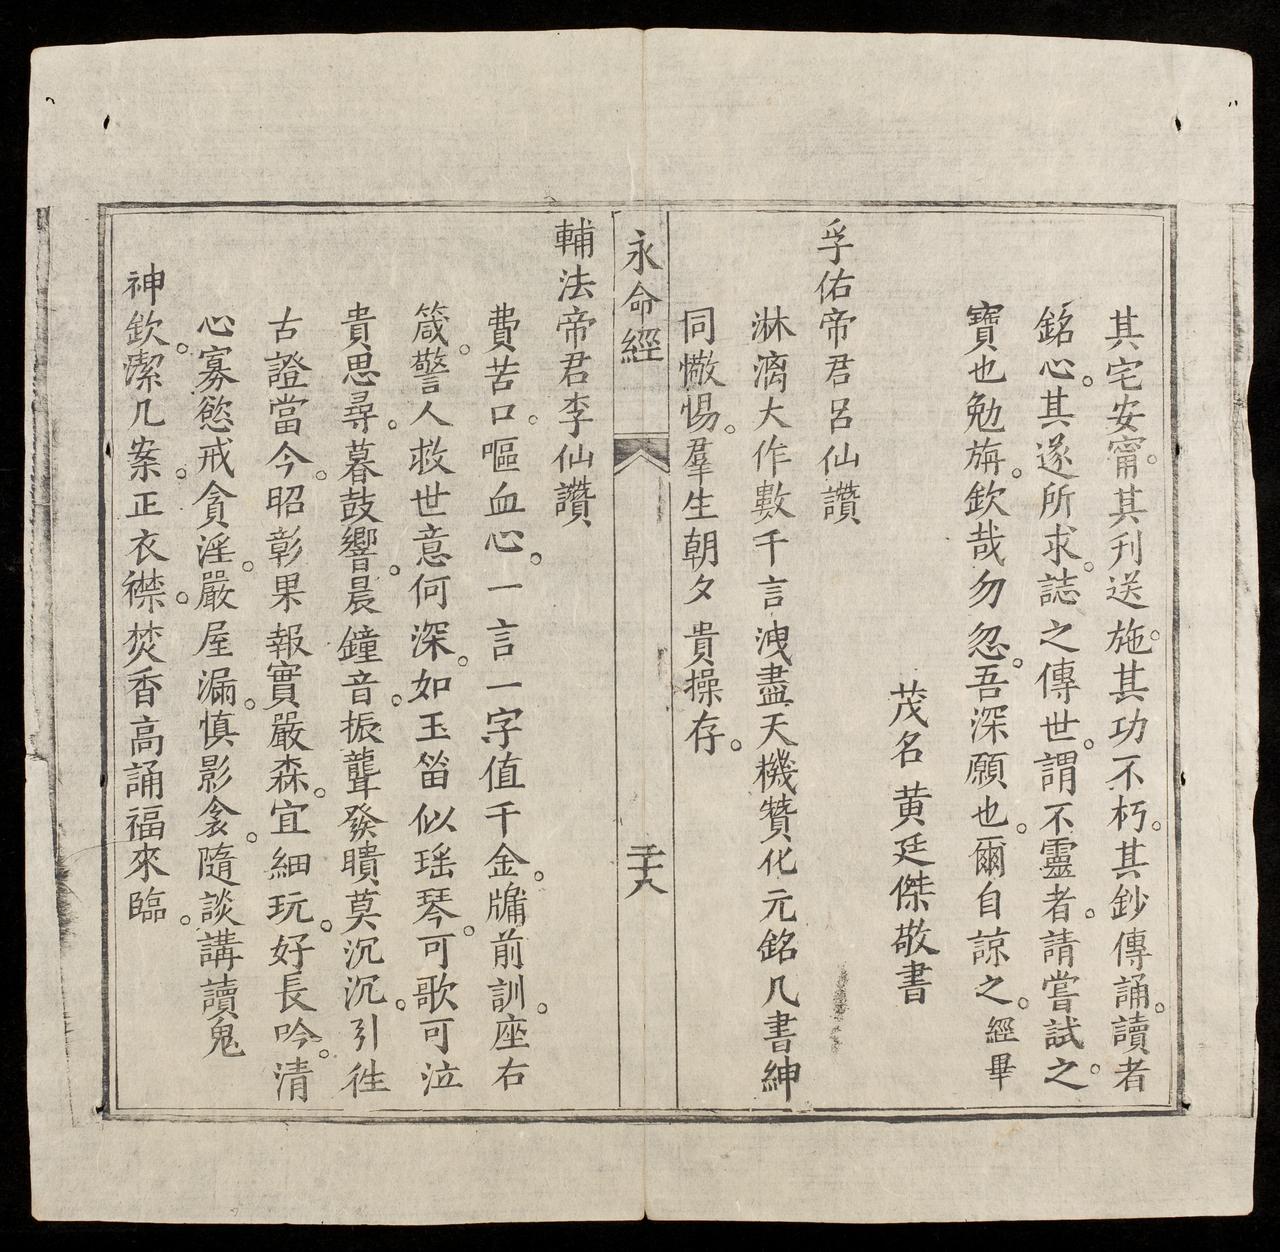 其宅安甯。其刊送施。其功不朽。其鈔傳誦。讀者
銘心。其遂所求。誌之傳世。謂不靈者。請嘗試之。
寶也勉旃。欽哉勿忽。吾深願也。爾自諒之。經畢
茂名黃廷傑敬書
孚佑帝君呂仙讚
淋漓大作數千言洩盡天機贊化元銘几書紳
同儆惕。羣生朝夕貴操存。
永命經
二十八
輔法帝君李仙讚
費苦口。嘔血心。一言一字值千金。牖前訓。座右
箴。警人救世意何深。如玉笛似瑤琴。可歌可泣
貴思尋。暮鼓響。晨鐘音。振聾發聵莫沉沉。引徃
古證當今。昭彰果報實嚴森。宜細玩。好長吟。清
心寡慾戒貪淫。嚴屋漏。慎影衾。隨談講讀鬼
神欽。潔几案。正衣襟。焚香高誦福來臨。